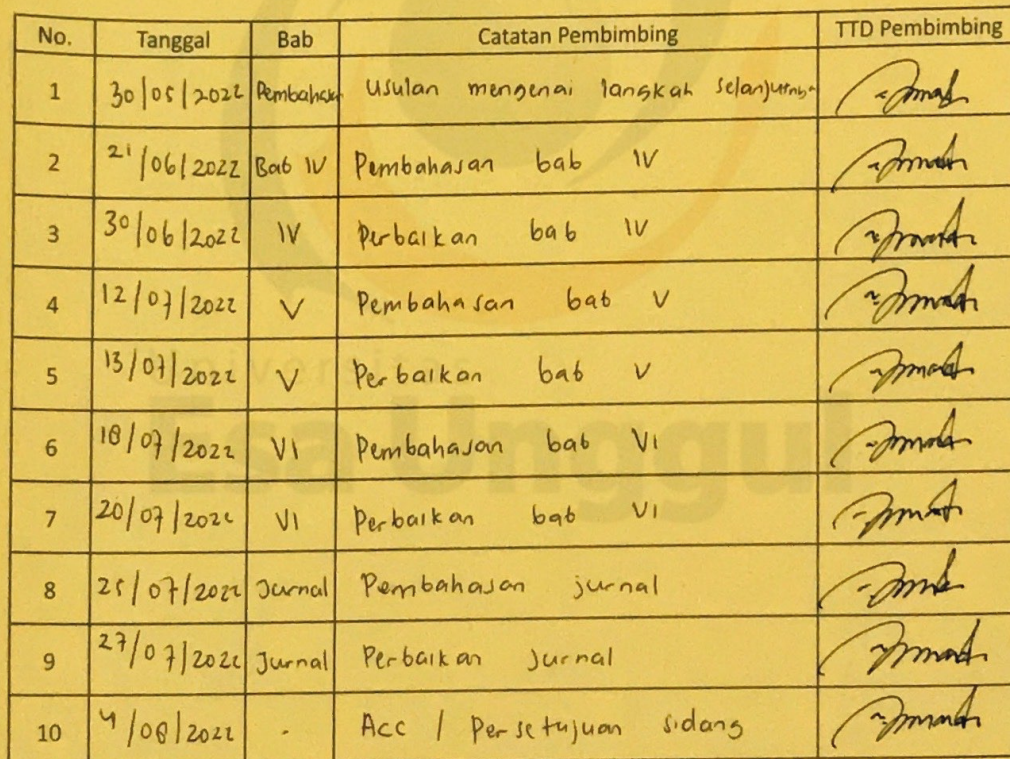 No. Tanggal Bab Catatan Pembimbing TTD Pembimbing
1 30/05/2022 Pembahasan Usulan mengenai langkah selanjutnya
2 21/06/2022 Bab IV Pembahasan bab IV
3 30/06/2022 IV Perbaikan bab IV
4 12/07/2022 V Pembahasan bab V
5 13/07/2022 V Perbaikan bab V
Universitas
Esa Unggul
6 18/07/2022 VI Pembahasan bab VI
7 20/07/2022 VI Perbaikan bab VI
8 25/07/2022 Jurnal Pembahasan jurnal
9 27/07/2022 Jurnal Perbaikan Jurnal
10 4/08/2022 - Acc / Persetujuan sidang